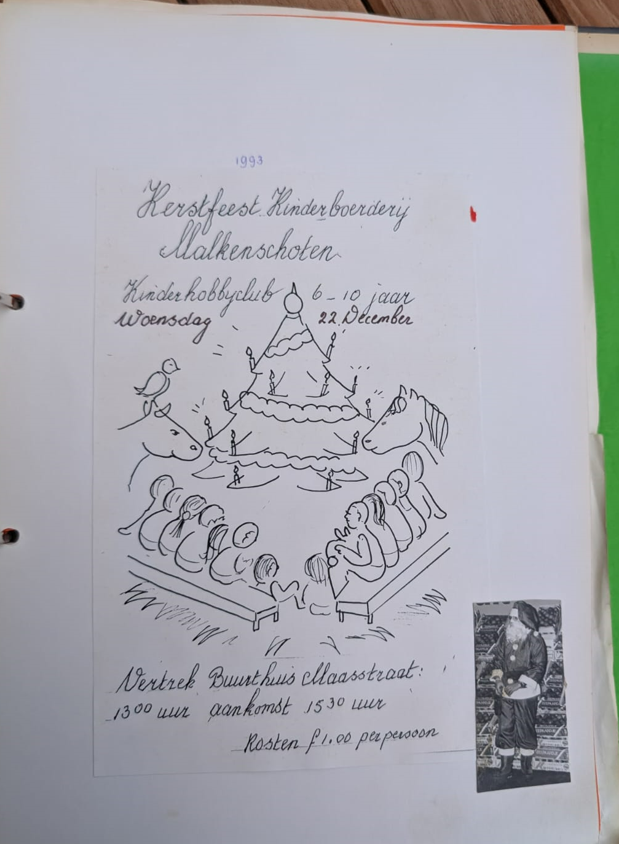 1993
Kerstfeest Kinderboerderij
Malkenschoten
Kinderhobbyclub 6-10 jaar
Woensdag 22 December
Vertrek Buurthuis Maasstraat:
13⁰⁰ uur aankomst 15³⁰ uur
Kosten f 1.00 per persoon